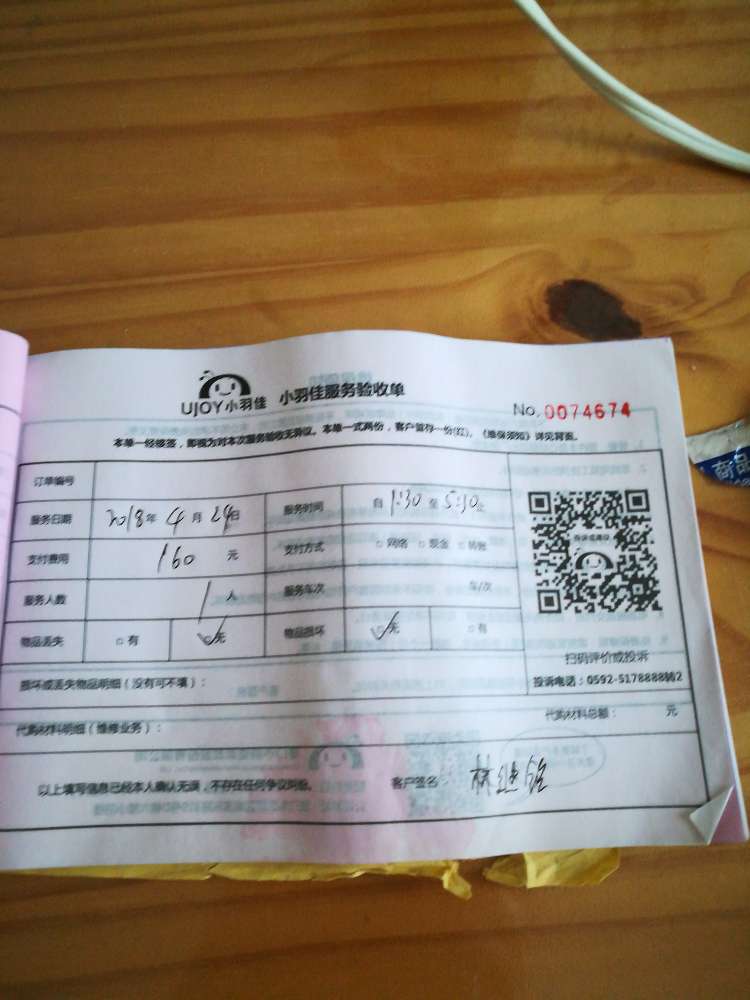 UJOY小羽佳 小羽佳服务验收单
No. 0074674
本单一经接签，即视为对本次服务验收无异议。本单一式两份，客户留存一份(红)。《维保须知》详见背面。
订单编号
服务日期 2018年 4月 29日 服务时间 自 1:30 至 5:30 止
支付费用 160 元 支付方式 □ 网络 □ 现金 □ 转账
服务人数 1 人 服务车次 车/次
物品丢失 □ 有 ✓无 物品损坏 ✓无 □ 有
投诉或建议
扫码评价或投诉
损坏或丢失物品明细（没有可不填）：
投诉电话：0592-5178888转2
代购材料明细（维修业务）： 代购材料总额： 元
以上填写信息已经本人确认无误，不存在任何争议纠纷。 客户签名：林
商品